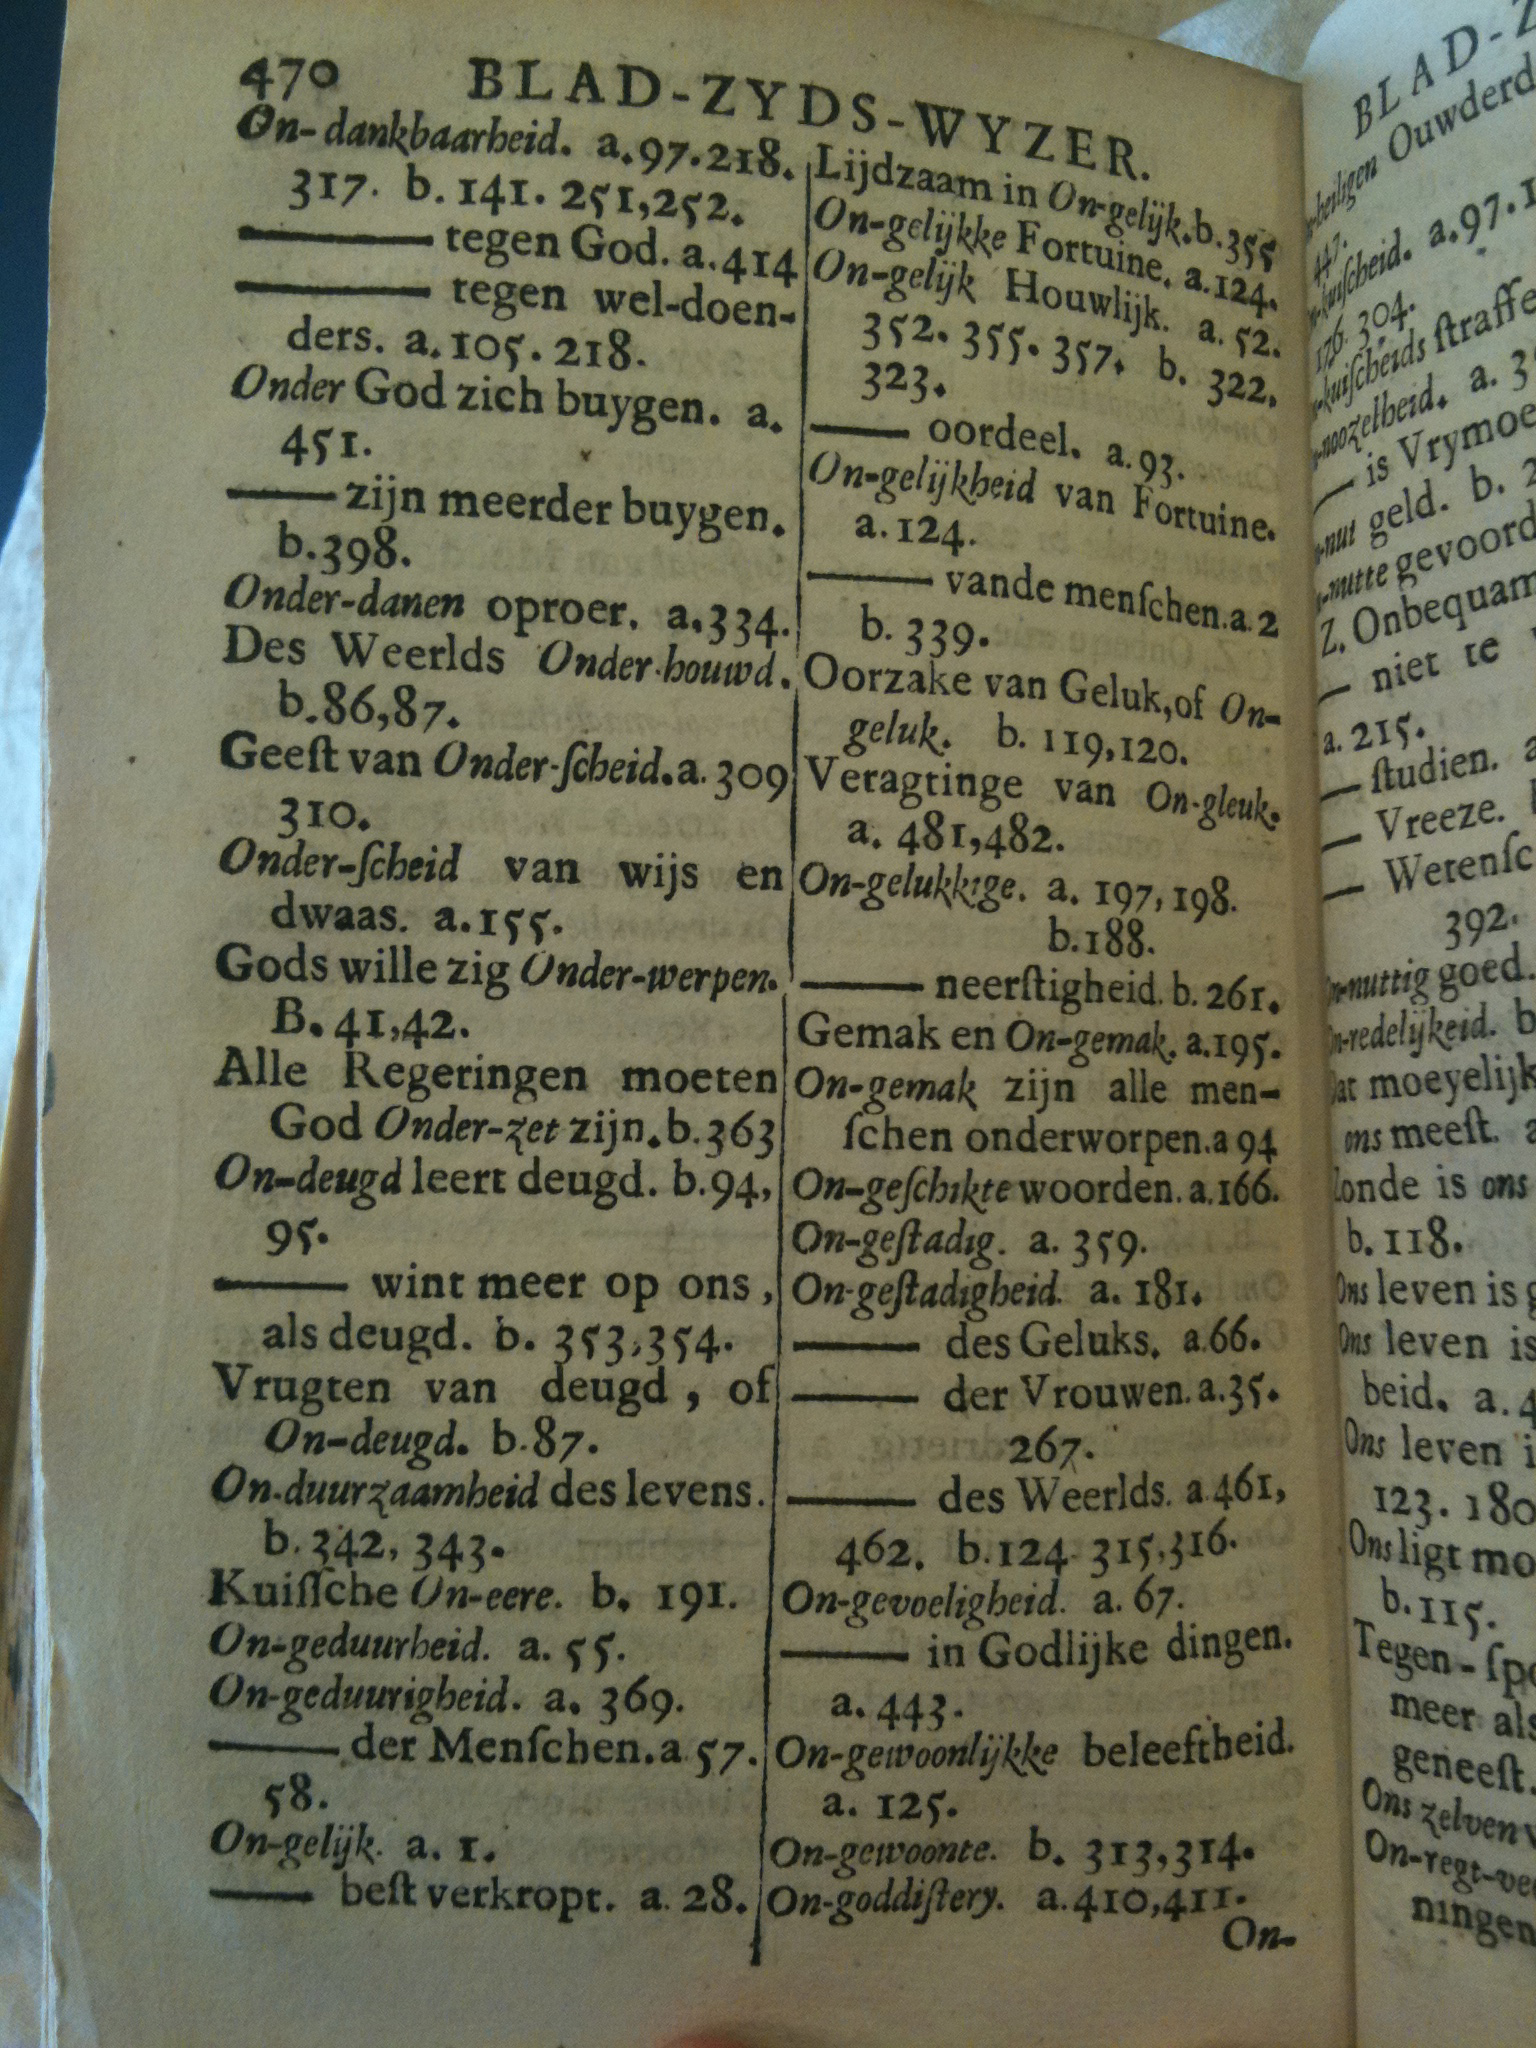 470 BLAD-ZYDS-WYZER.
On-dankbaarheid. a.97.218.
317. b. 141. 251,252.
——— tegen God. a.414
——— tegen wel-doen-
ders. a.105.218.
Onder God zich buygen. a.
451.
——— zijn meerder buygen.
b.398.
Onder-danen oproer. a.334.
Des Weerlds Onder-houwd.
b.86,87.
Geeſt van Onder-ſcheid.a.309
310.
Onder-ſcheid van wijs en
dwaas. a.155.
Gods wille zig Onder-werpen.
B. 41,42.
Alle Regeringen moeten
God Onder-zet zijn.b.363
On-deugd leert deugd. b.94,
95.
——— wint meer op ons,
als deugd. b. 353,354.
Vrugten van deugd, of
On-deugd. b.87.
On-duurzaamheid des levens.
b.342, 343.
Kuiſſche On-eere. b. 191.
On-geduurheid. a. 55.
On-geduurigheid. a. 369.
——— der Menſchen.a 57.
58.
On-gelijk. a. 1.
——— beſt verkropt. a. 28.
Lijdzaam in On-gelijk.b.355
On-gelijkke Fortuine. a.124.
On-gelijk Houwlijk. a. 52.
352. 355. 357. b. 322.
323.
——— oordeel. a.93.
On-gelijkheid van Fortuine.
a.124.
——— vande menſchen.a.2
b. 339.
Oorzake van Geluk,of On-
geluk. b. 119,120.
Veragtinge van On-gleuk.
a. 481,482.
On-gelukkige. a. 197,198.
b.188.
——— neerſtigheid. b. 261.
Gemak en On-gemak. a.195.
On-gemak zijn alle men-
ſchen onderworpen.a 94
On-geſchikte woorden. a.166.
On-geſtadig. a. 359.
On-geſtadigheid. a. 181.
——— des Geluks. a.66.
——— der Vrouwen. a.35.
267.
——— des Weerlds. a.461,
462. b.124 315,316.
On-gevoeligheid. a. 67.
——— in Godlijke dingen.
a. 443.
On-gewoonlijkke beleeftheid.
a. 125.
On-gewoonte. b. 313,314.
On-goddiſtery. a.410,411.
On-
BLAD-Z
Ouwderd
447.
a.97.1
176. 304.
ſtraffe
a. 3
— is Vrymoe
geld. b. 2
gevoord
Z. Onbequam
— niet te
a. 215.
— ſtudien. a
— Vreeze.
— Werenſc
392.
goed.
b
moeyelijk
ons meeſt. a
is ons
b. 118.
Ons leven is g
Ons leven is
beid. a. 4
Ons leven i
123. 180
Ons ligt mo
b. 115.
Tegen-ſpo
meer als
geneeſt.
Ons zelven v
On-regt-vee
ningen